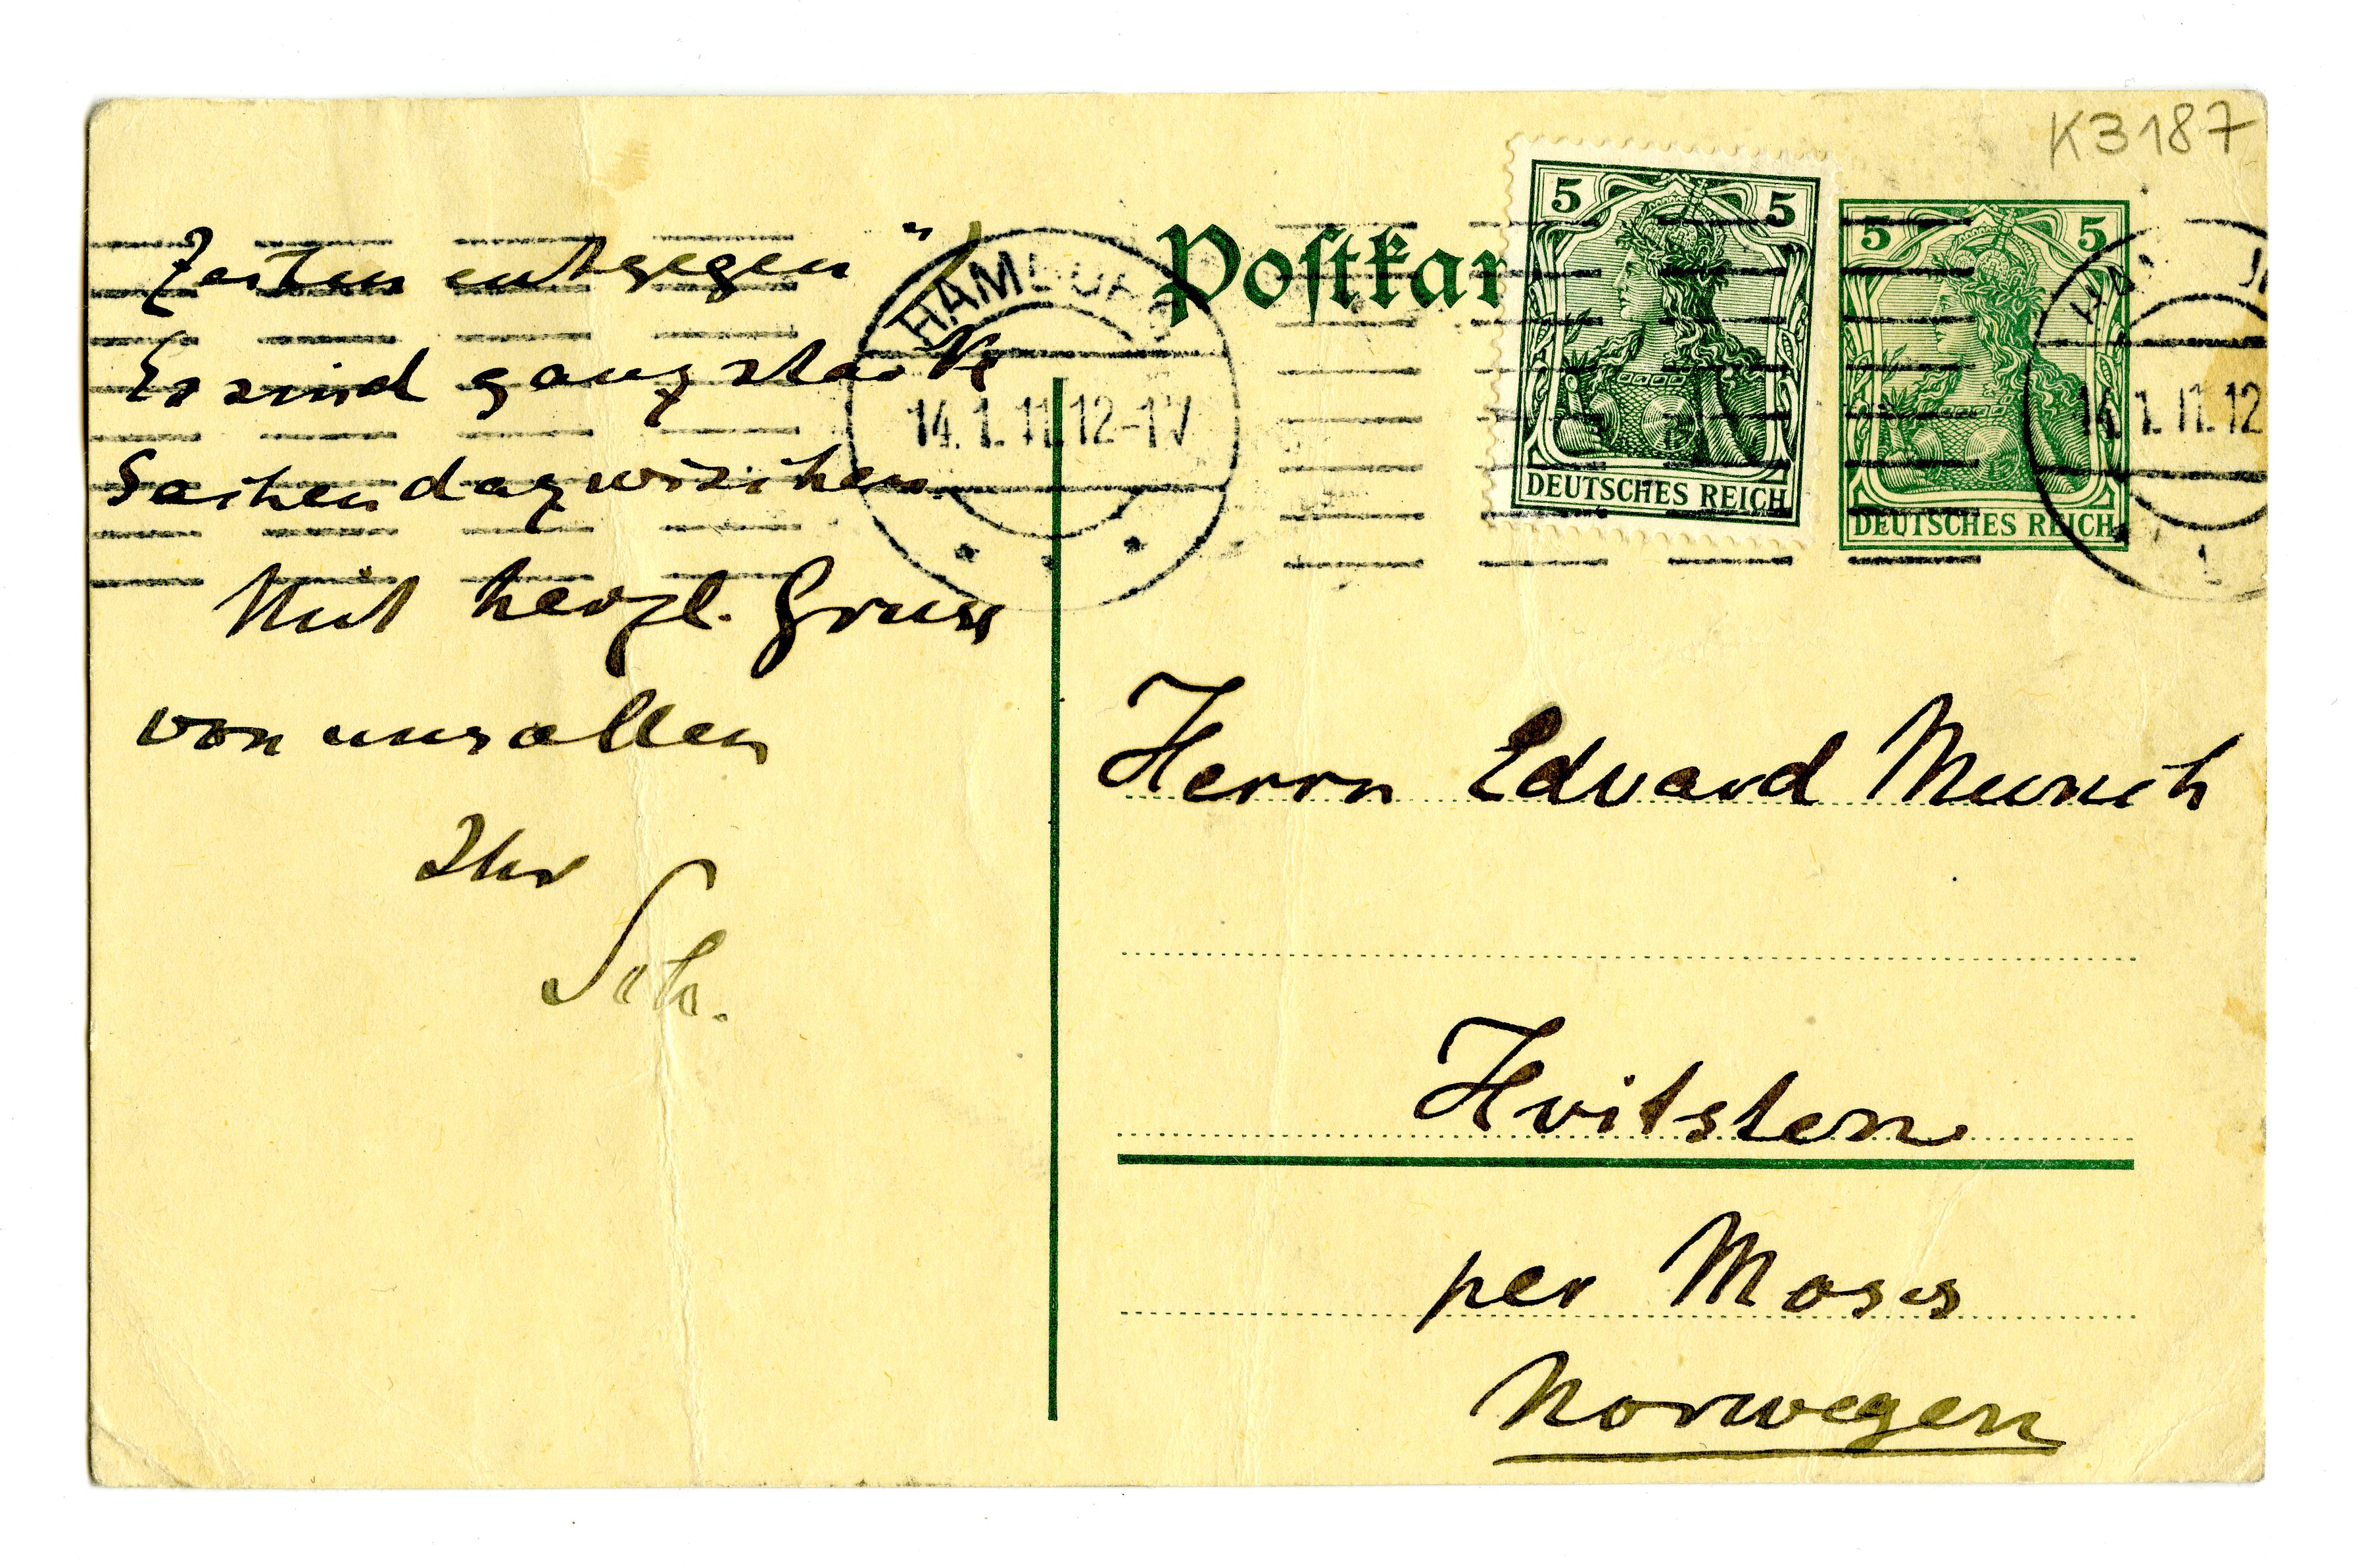 K3187
Postkar
5 5
DEUTSCHES REICH
5 5
DEUTSCHES REICH
HAMBURG
14.1.11.12-1V
14.1.11.12
Zeiten entgegen "!
Es sind ganz starke
Sachen dazwischen.
Mit herzl. Gruss
von uns allen
Ihr
Sch.
Herrn Edvard Munch
Hvitsten
per Moss
Norwegen